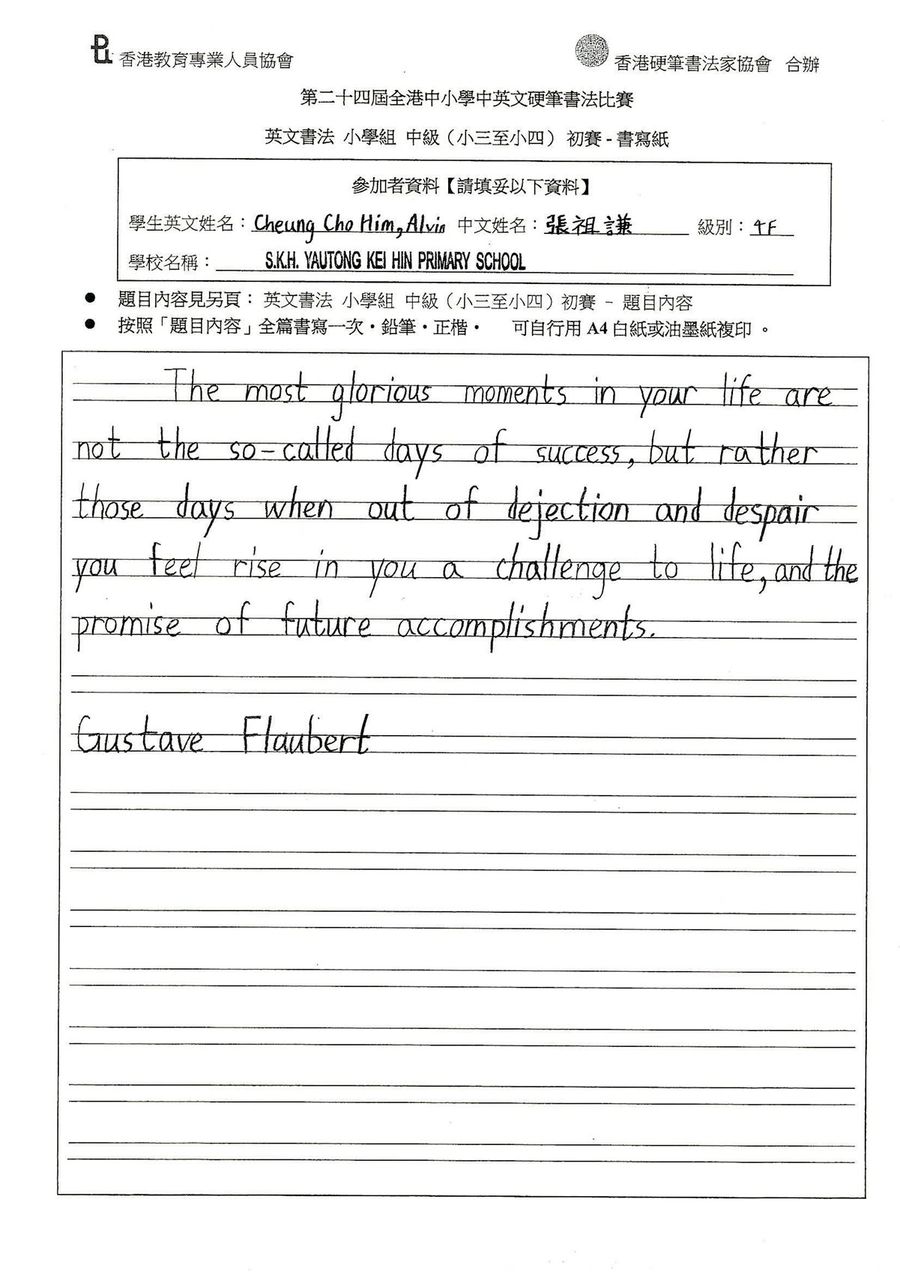 香港教育專業人員協會
香港硬筆書法家協會 合辦
第二十四屆全港中小學中英文硬筆書法比賽
英文書法 小學組 中級（小三至小四） 初賽-書寫紙
參加者資料【請填妥以下資料】
學生英文姓名：Cheung Cho Him, Alvin 中文姓名：張祖謙 級別：4F
學校名稱：S.K.H. YAUTONG KEI HIN PRIMARY SCHOOL
● 題目內容見另頁：英文書法 小學組 中級（小三至小四）初賽 - 題目內容
● 按照「題目內容」全篇書寫一次‧鉛筆‧正楷‧ 可自行用 A4 白紙或油墨紙複印。
The most glorious moments in your life are
not the so-called days of success, but rather
those days when out of dejection and despair
you feel rise in you a challenge to life, and the
promise of future accomplishments.
Gustave Flaubert